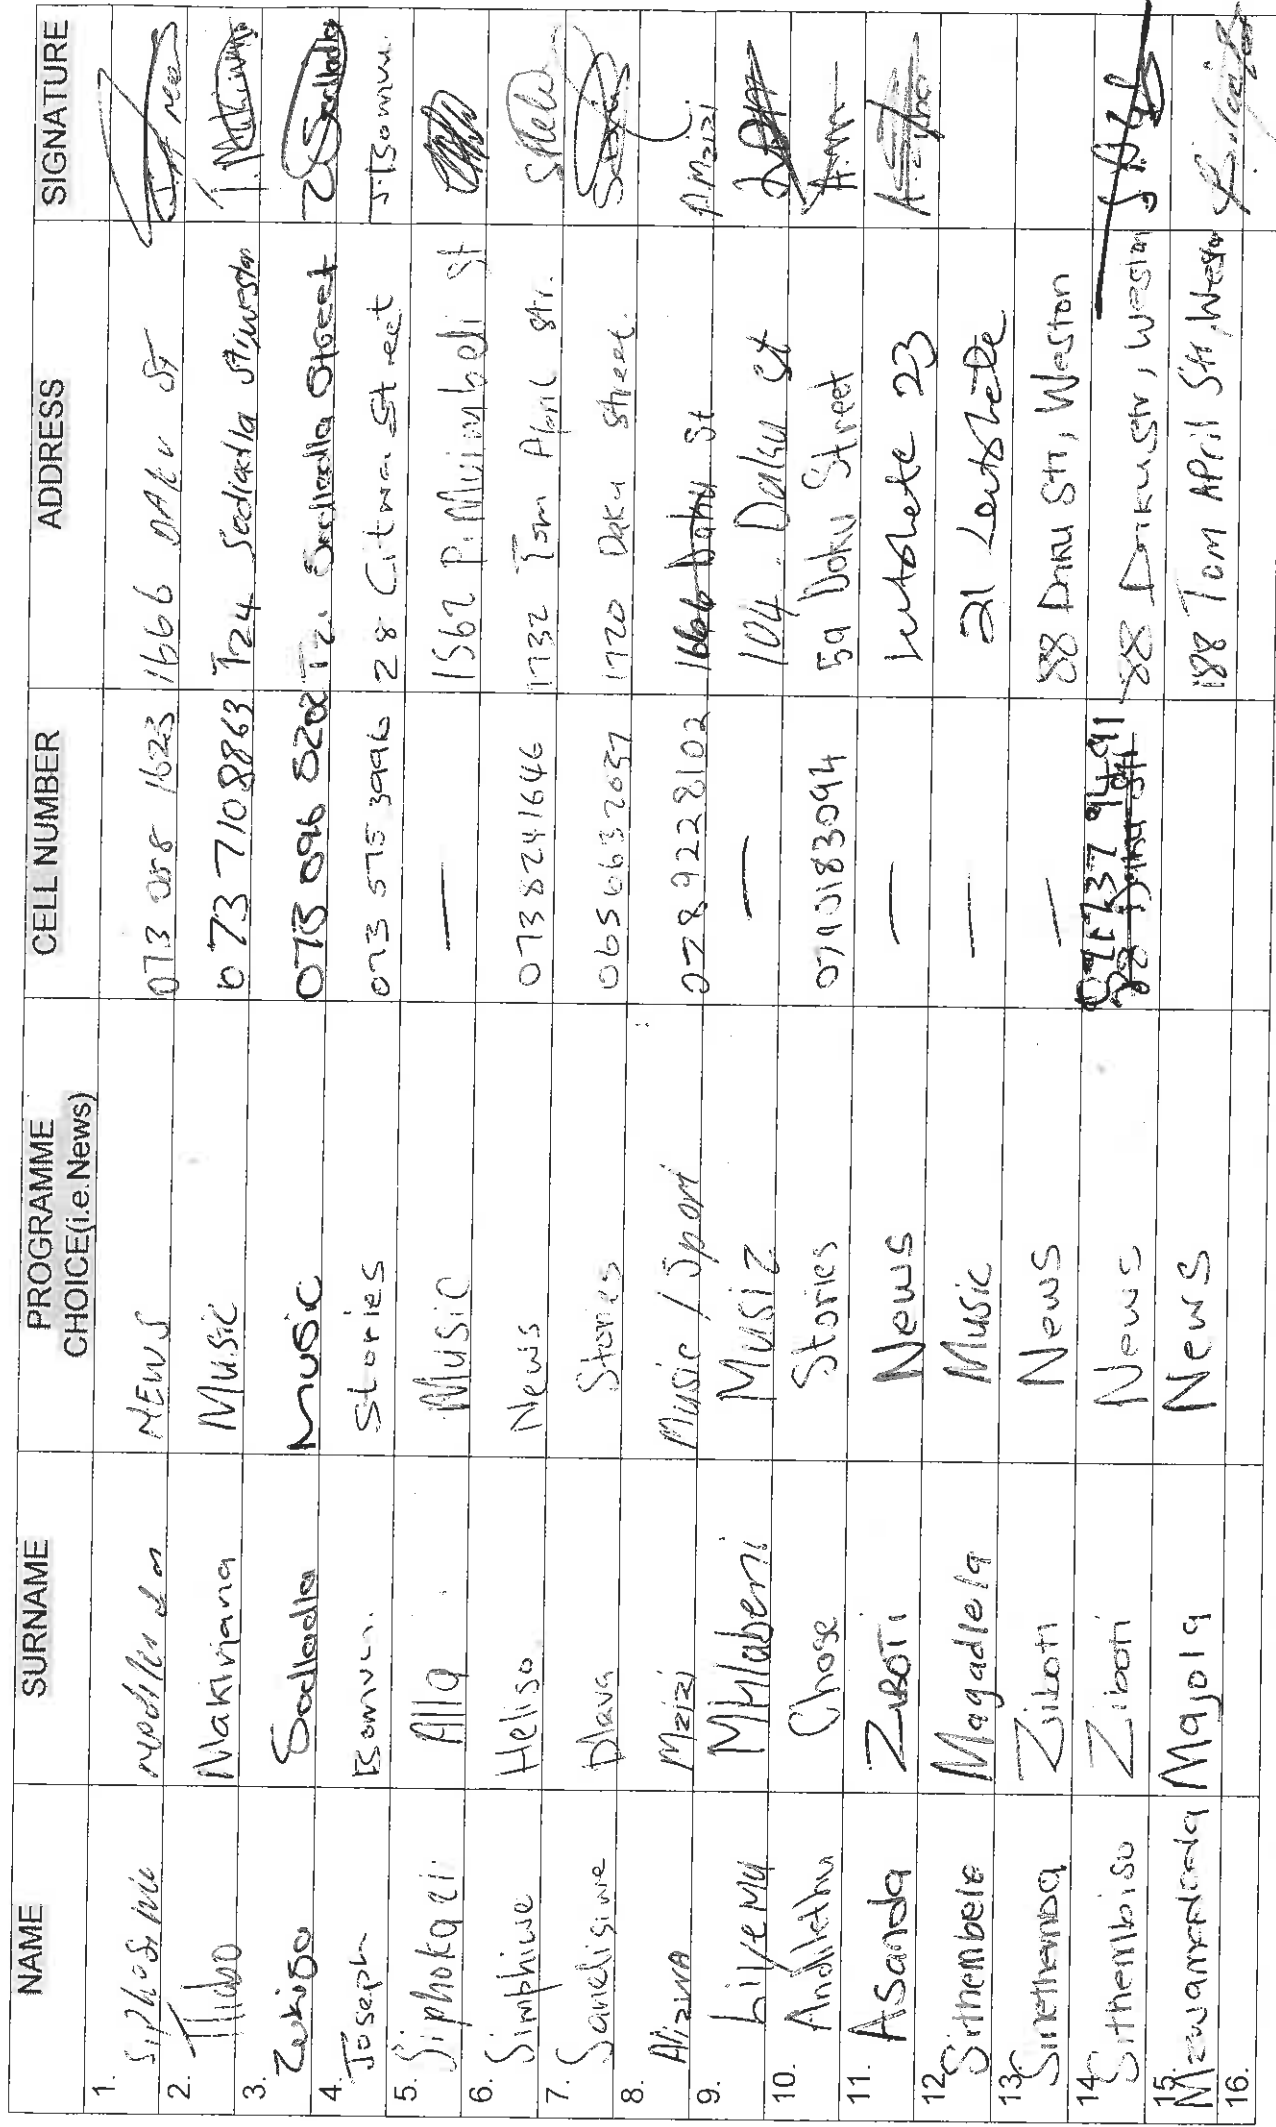 NAME SURNAME PROGRAMME CHOICE(i.e.News) CELL NUMBER ADDRESS SIGNATURE
1. NEWS 073 058 1623 1666 DAKU ST
2. Thabo Makivjana Music 073 7108863 T24 Sadladla St, Weston
3. Zukiso Sadladla Music 073 096 T2. Sadladla Street
4. Joseph Bomvu. Stories 073 575 3996 28 Citwa Street J.Bomvu.
5. Siphokazi Alla Music — 1562 P. Mvimbeli St
6. Simphiwe Heliso News 0738241646 1732 Tom April Str.
7. Sanelisiwe Dlava Stories 0656632037 1720 Daku Street.
8. Aviwa Mzizi Music / Sport 0789228102 1666 Daku St A Mzizi
9. Livemy MHlabeni Music — 104. Daku st
10. Andilethu Chose Stories 0740183094 59 Daku Street A.M
11. Asanda ZIBOTI News — Lutshete 23
12. Sithembele Magadlela Music — 21 Lutshete
13. Sinethemba Ziboti News — 88 Daku Str, Weston
14. Sithembiso Ziboti News 88 Daku Str, Weston
15. Mzwamadoda Majola News 188 Tom April Str, Weston
16.